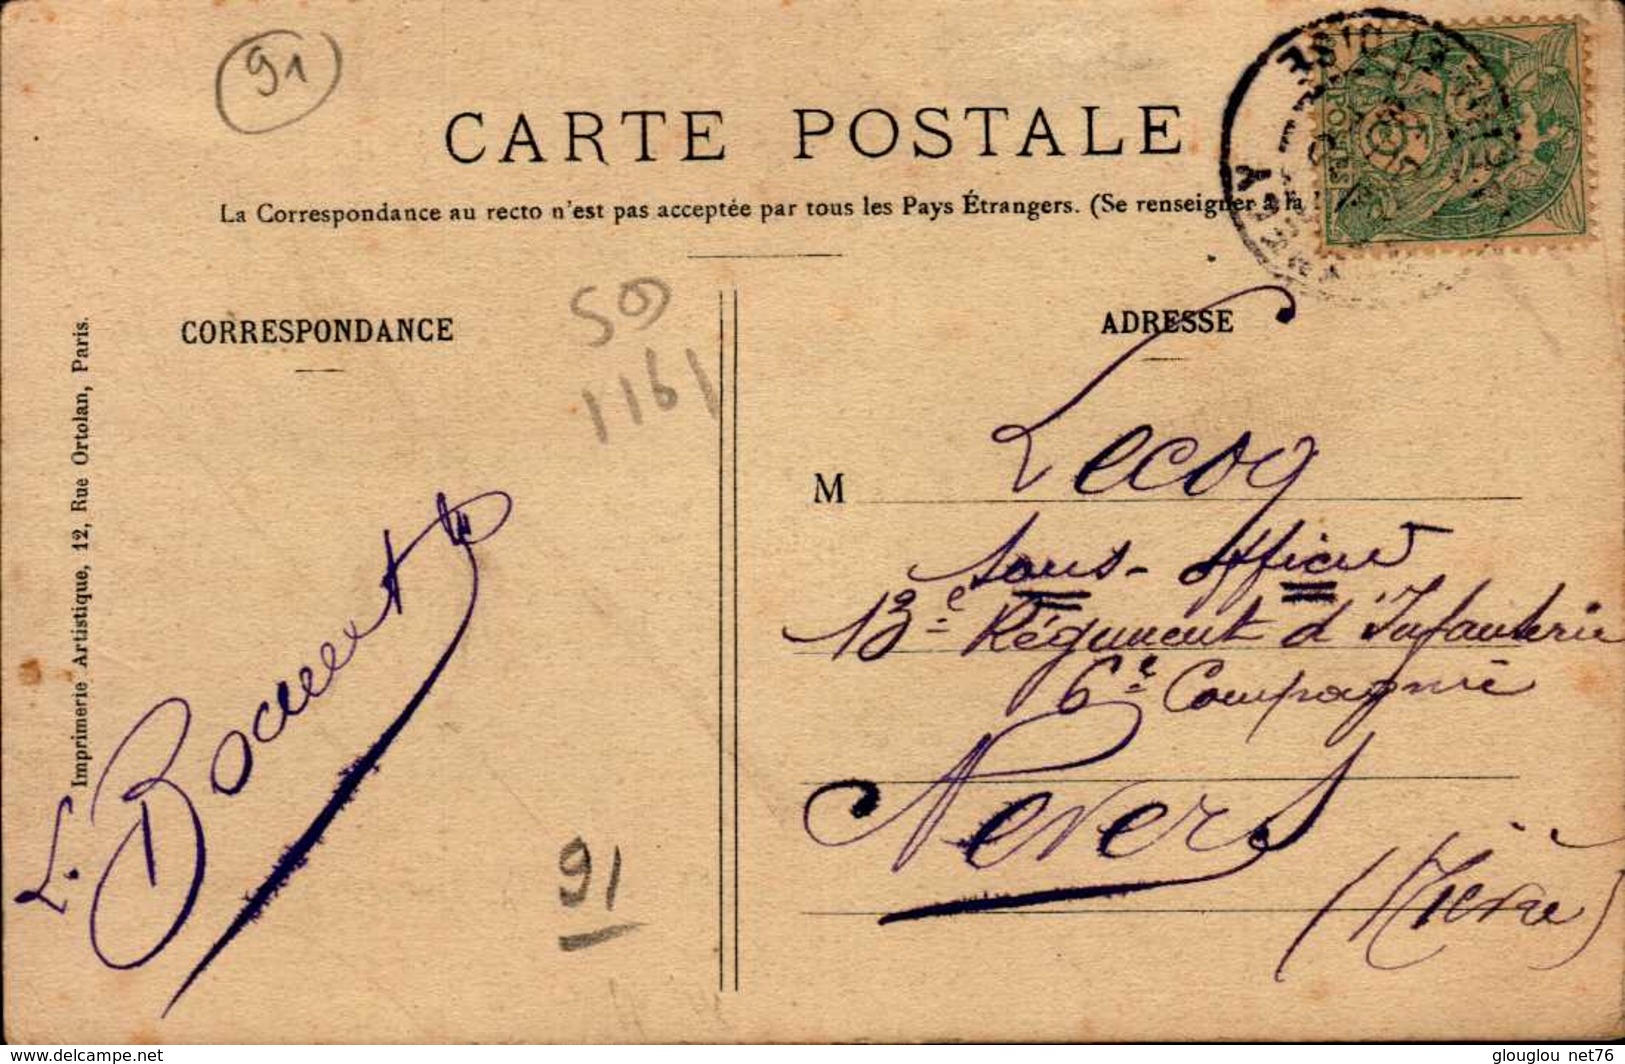 91
CARTE POSTALE
La Correspondance au recto n'est pas acceptée par tous les Pays Étrangers. (Se renseigner à la
CORRESPONDANCE
50
1161
Imprimerie Artistique, 12, Rue Ortolan, Paris.
L. Bocquet
91
ADRESSE
M Lecoq
Sous-officier
13e Régiment d'Infanterie
6e Compagnie
Nevers
(Nièvre)
ET-OISE
POSTES
www.delcampe.net
glouglou_net76